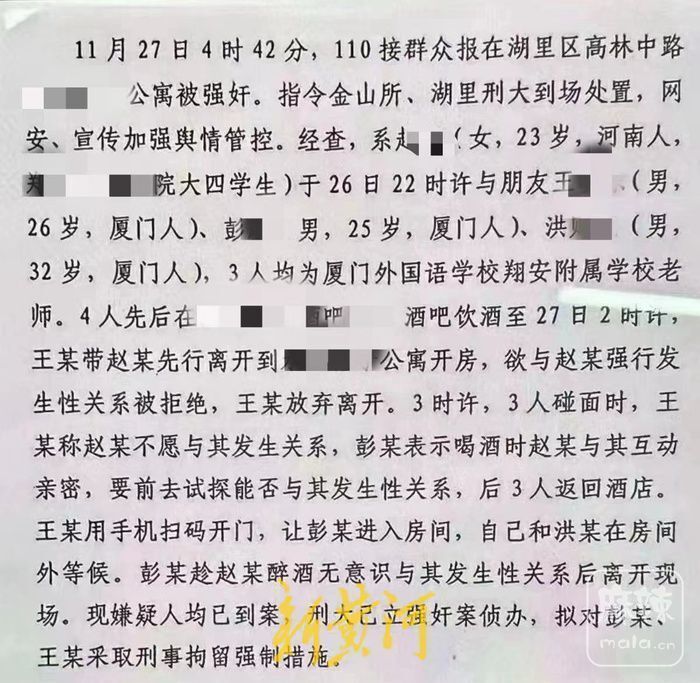 11月27日4时42分，110接群众报在湖里区高林中路
公寓被强奸。指令金山所、湖里刑大到场处置，网
安、宣传加强舆情管控。经查，系赵（女，23岁，河南人，
院大四学生）于26日22时许与朋友王（男，
26岁，厦门人）、彭 男，25岁，厦门人）、洪（男，
32岁，厦门人），3人均为厦门外国语学校翔安附属学校老
师。4人先后在 酒吧 酒吧饮酒至27日2时许，
王某带赵某先行离开到 公寓开房，欲与赵某强行发
生性关系被拒绝，王某放弃离开。3时许，3人碰面时，王
某称赵某不愿与其发生关系，彭某表示喝酒时赵某与其互动
亲密，要前去试探能否与其发生性关系，后3人返回酒店。
王某用手机扫码开门，让彭某进入房间，自己和洪某在房间
外等候。彭某趁赵某醉酒无意识与其发生性关系后离开现
场。现嫌疑人均已到案，刑大已立强奸案侦办，拟对彭某、
王某采取刑事拘留强制措施。
新黄河
麻辣
mala.cn